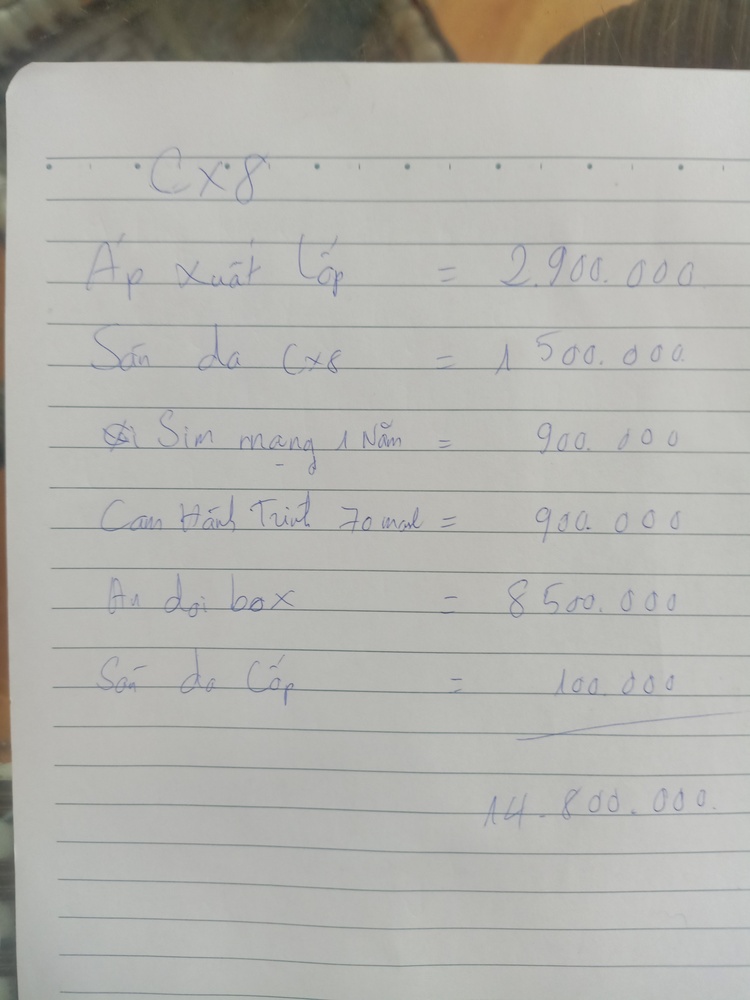 Cx8
Áp xuất lốp = 2.900.000
Sàn da Cx8 = 1 500.000
Sim mạng 1 Năm = 900.000
Cam Hành Trình 70mai = 900.000
An doi box = 8 500.000
Sàn da Cốp = 100.000
14.800.000.